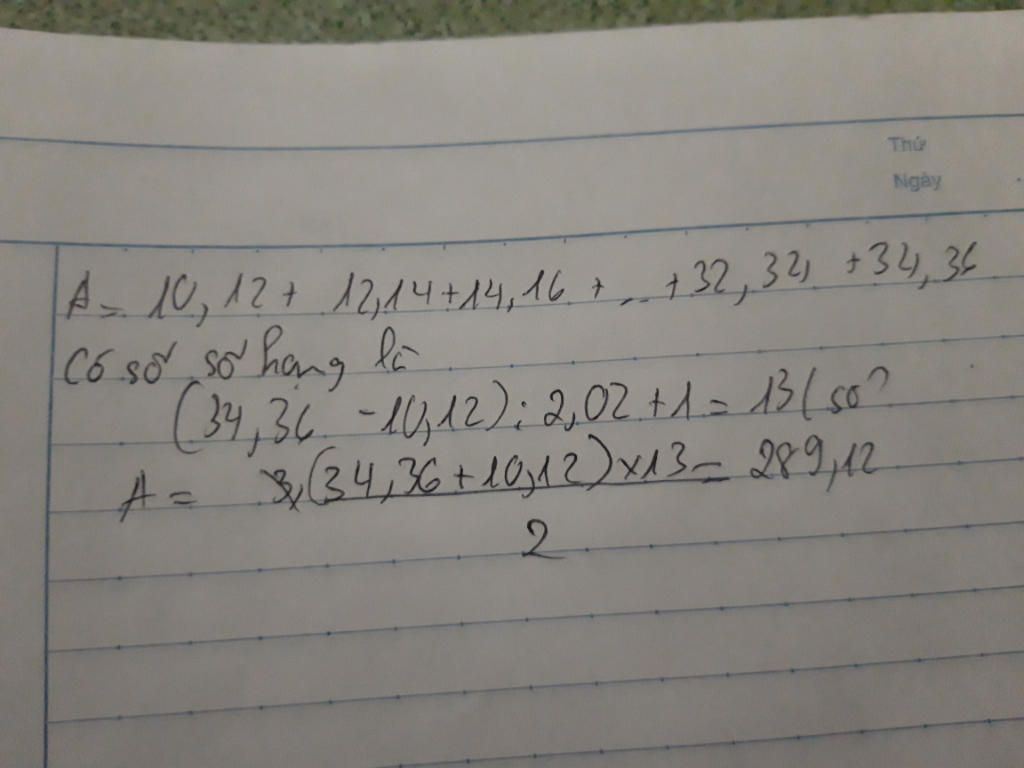 Thứ
Ngày
A = 10,12 + 12,14 + 14,16 + ... + 32,34 + 34,36
Có số số hạng là
(34,36 - 10,12) : 2,02 + 1 = 13 (số
A = (34,36 + 10,12) x 13 = 289,12
2